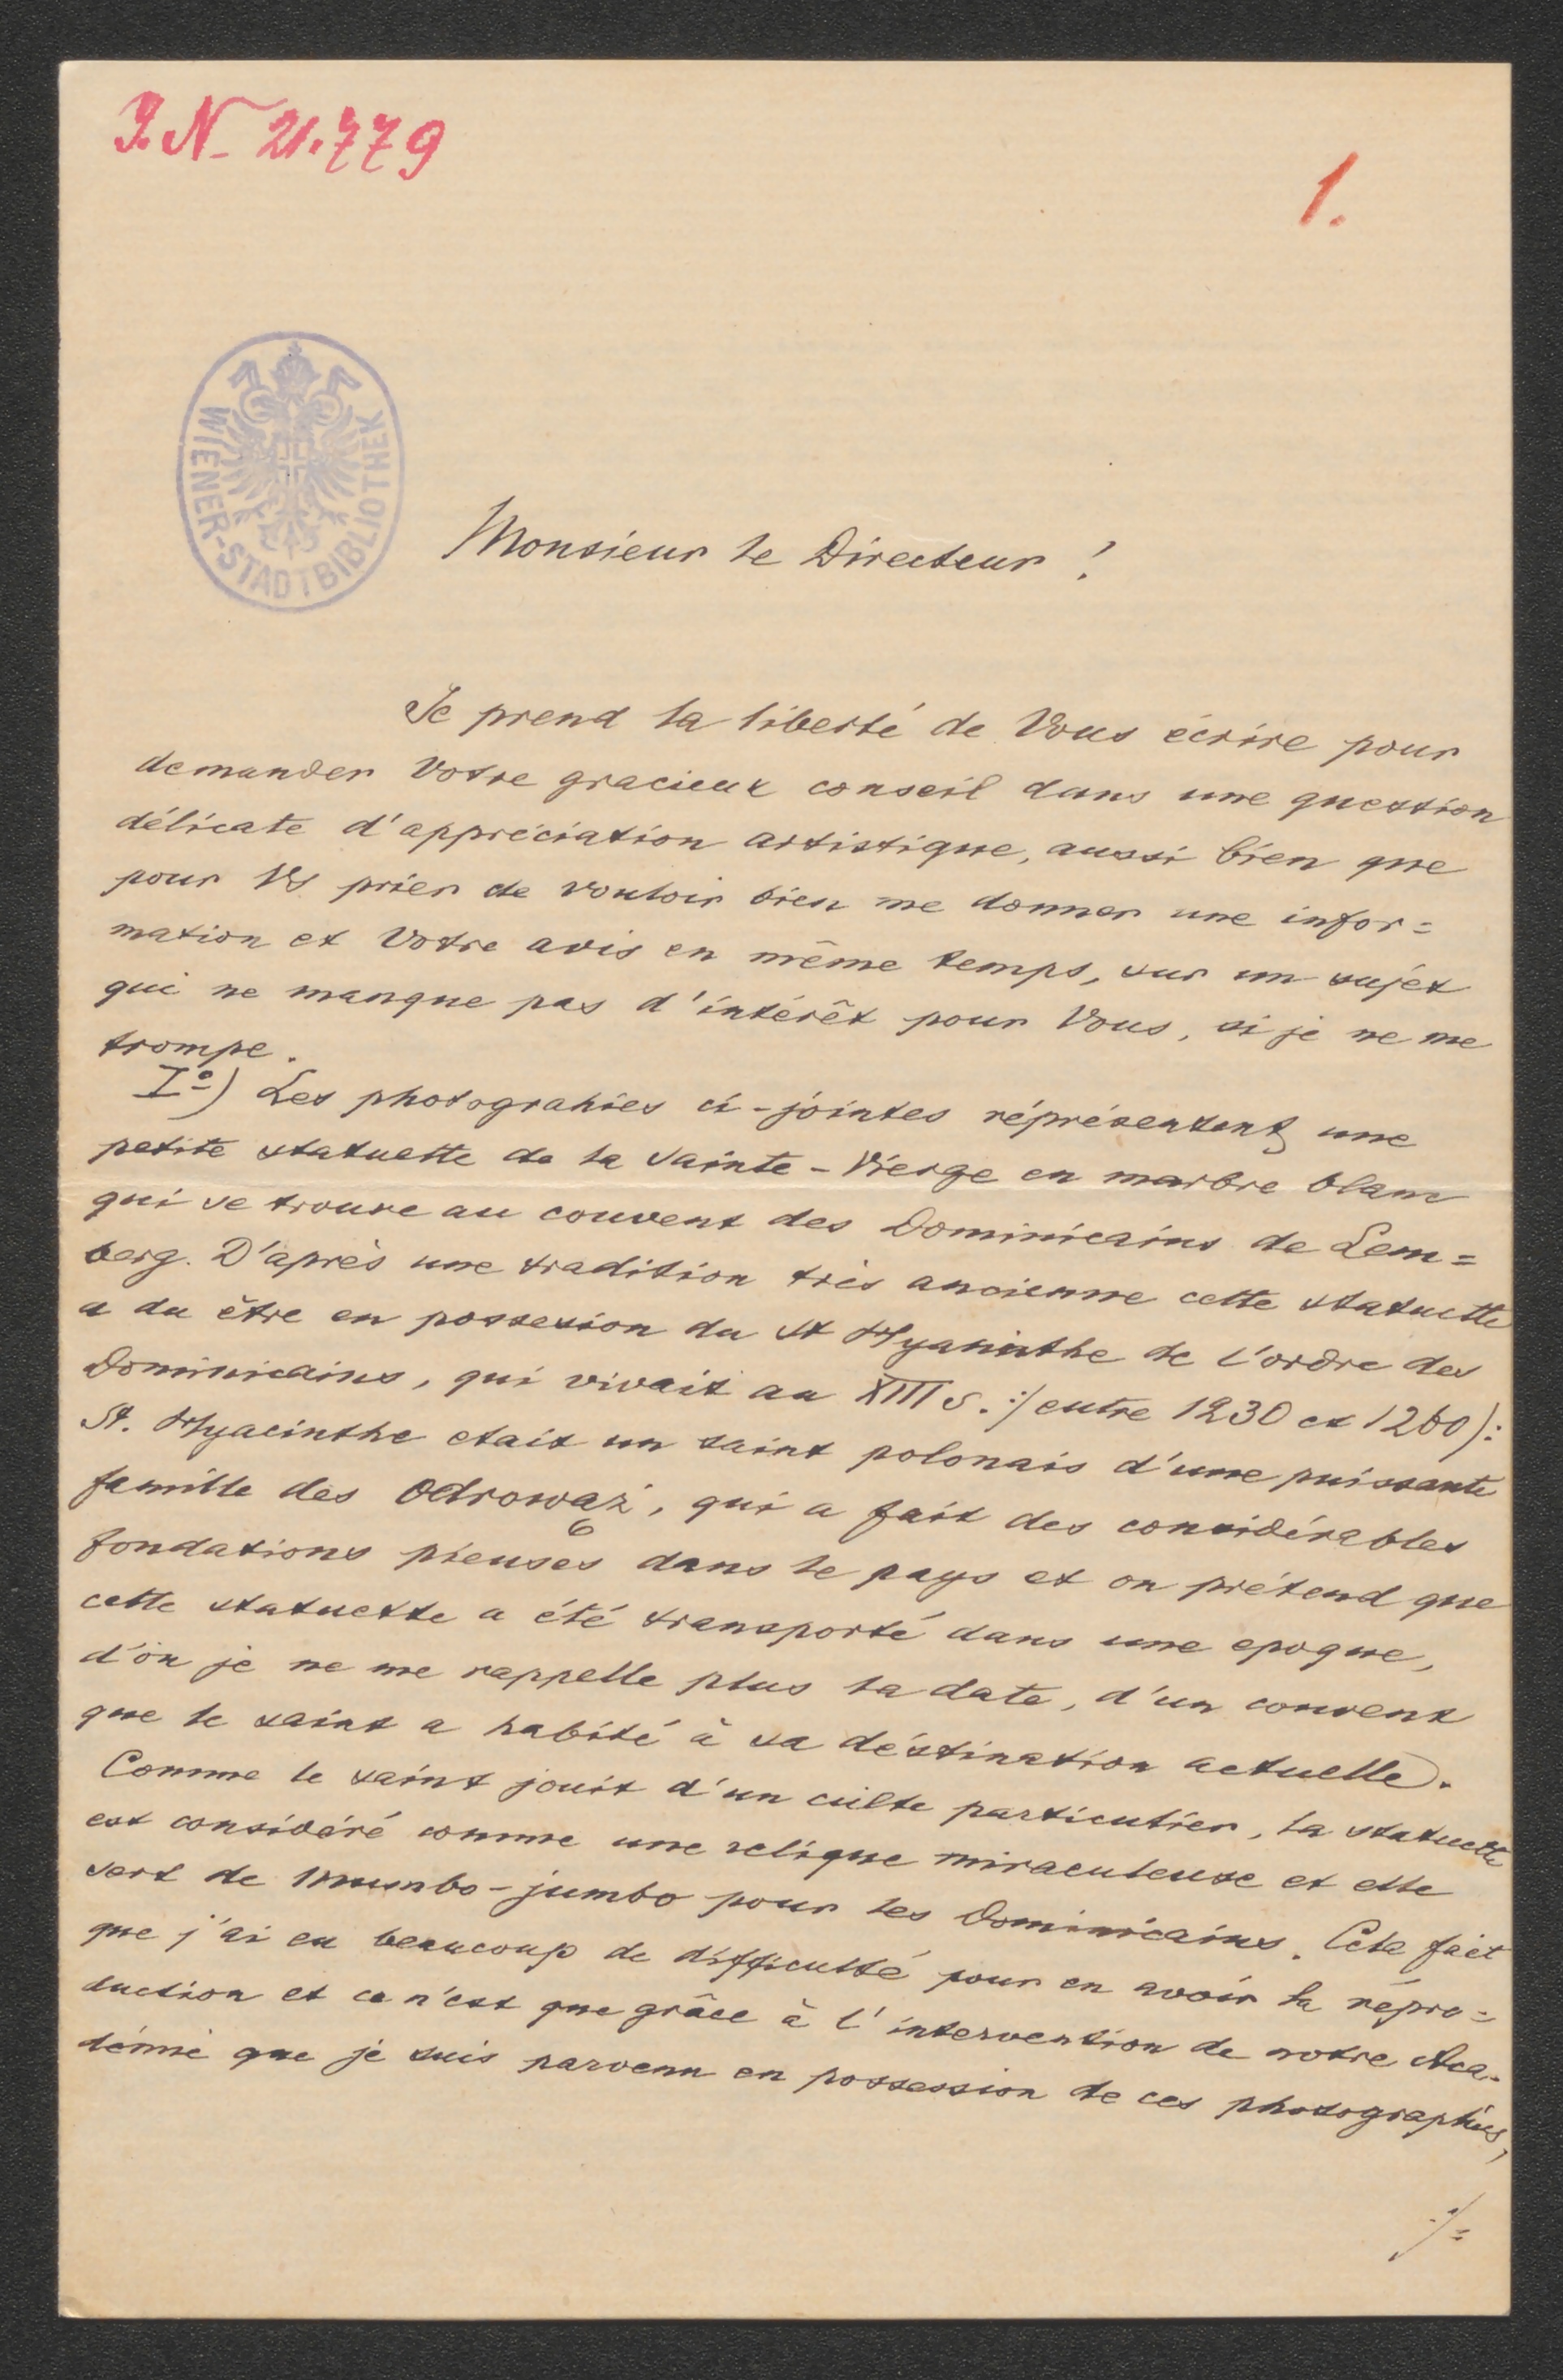 J.N. 21.779
1.
WIENER-STADTBIBLIOTHEK
Monsieur le Directeur !
Je prend la liberté de Vous écrire pour
demander Votre gracieux conseil dans une question
délicate d'appréciation artistique, aussi bien que
pour Vs prier de vouloir bien me donner une infor=
mation et Votre avis en même temps, sur un sujet
qui ne manque pas d'intérêt pour Vous, si je ne me
trompe.
I°) Les photograhies ci-jointes réprésentent une
petite statuette de la Sainte-Vierge en marbre blanc
qui se trouve au couvent des Dominicains de Lem=
berg. D'après une tradition très ancienne cette statuette
a du être en possesion du St Hyacinthe de l'ordre des
Dominicains, qui vivait au XIII s. :/ entre 1230 et 1260):
St. Hyacinthe etait un saint polonais d'une puissante
famille des Odrowąż, qui a fait des considérables
fondations pieuses dans le pays et on prétend que
cette statuette a été transporté dans une epoque,
d'où je ne me rappelle plus la date, d'un couvent
que le saint a habité à sa déstination actuelle.
Comme le saint jouit d'un culte particulier, la statuette
est considéré comme une relique miraculeuse et elle
sert de Mumbo-jumbo pour les Dominicains. Cela fait
que j'ai eu beaucoup de difficulté pour en avoir la répro=
duction et ce n'est que grâce à l'intervention de notre Aca-
démie que je suis parvenu en possession de ces photographies,
:/=